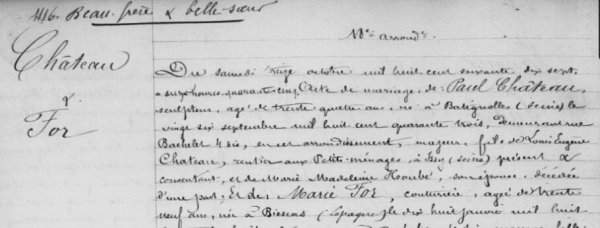 416. Beau-frère & belle-sœur
Château
&
For
Du samedi treize octobre mil huit cent soixante dix sept,
à onze heures quarante cinq. Acte de mariage, de Paul Château,
sculpteur, agé de trente quatre ans, né à Batignolles (Seine) le
vingt six septembre mil huit cent quarante trois, demeurant rue
Bachelet 4 bis, en cet arrondissement, majeur, fils de Louis Eugène
Chateau, rentier aux Petits-ménages, à Issy (Seine) présent &
consentant, et de Marie Madeleine son épouse, décédée
d'une part; Et de Marie For, couturière, agée de trente
neuf ans, née à Biescas (Espagne) le dix huit janvier mil huit